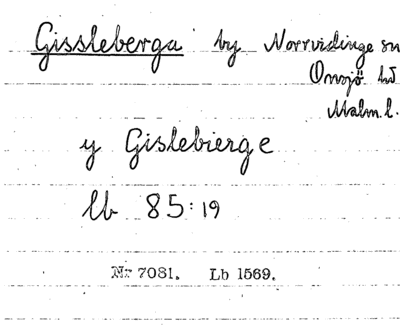 Gissleberga by Norrvidinge sn
Onsjö hd
Malm. l.
y Gislebierge
lb 85:19
Nr 7081. Lb 1569.